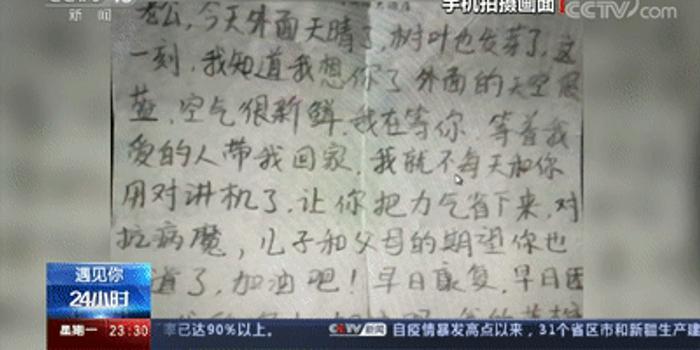 新闻
手机拍摄画面
CCTV.com
老公,今天外面天晴了,树叶也发芽了,这
一刻,我知道我想你了 外面的天空很
蓝,空气很新鲜,我在等你,等着我
爱的人带我回家,我就不每天和你
用对讲机了,让你把力气省下来,对
抗病魔,儿子和父母的期望你也
道了,加油吧!早日康复,早日回
遇见你
24小时
星期一 23:30
率已达90%以上。 CCTV新闻 自疫情暴发高点以来,31个省区市和新疆生产建